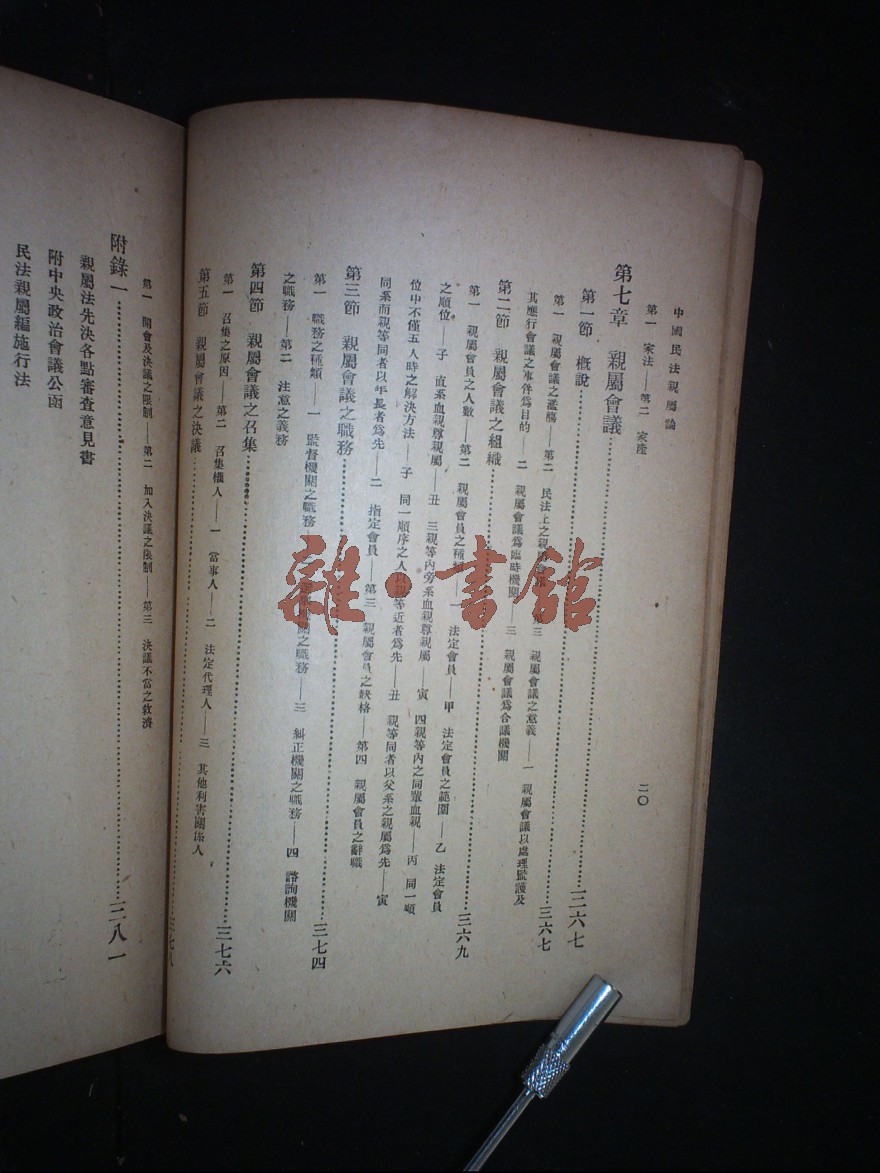 中國民法親屬論
二〇
第一 家法——第二 家產
第七章 親屬會議……三六七
第一節 概說……三六七
第一 親屬會議之濫觴——第二 民法上之親屬會 第三 親屬會議之意義——一 親屬會議以處理監護及
其應行會議之事件爲目的 二 親屬會議爲臨時機關——三 親屬會議爲合議機關
第二節 親屬會議之組織……三六九
第一 親屬會員之人數——第二 親屬會員之種 一 法定會員——甲 法定會員之範圍——乙 法定會員
之順位——子 直系血親尊親屬——丑 三親等內旁系血親尊親屬——寅 四親等內之同輩血親——丙 同一順
位中不僅五人時之解決方法——子 同一順序之人以親等近者爲先——丑 親等同者以父系之親屬爲先——寅
同系而親等同者以年長者爲先——二 指定會員——第三 親屬會員之缺格——第四 親屬會員之辭職
第三節 親屬會議之職務……三七四
第一 職務之種類——一 監督機關之職務 關之職務——三 糾正機關之職務——四 諮詢機關
之職務——第二 注意之義務
第四節 親屬會議之召集……三七六
第一 召集之原因——第二 召集權人——一 當事人——二 法定代理人——三 其他利害關係人
第五節 親屬會議之決議……三七八
第一 開會及決議之限制——第二 加入決議之限制——第三 決議不當之救濟
附錄一……三八一
親屬法先決各點審查意見書
附中央政治會議公函
民法親屬編施行法
雜·書館